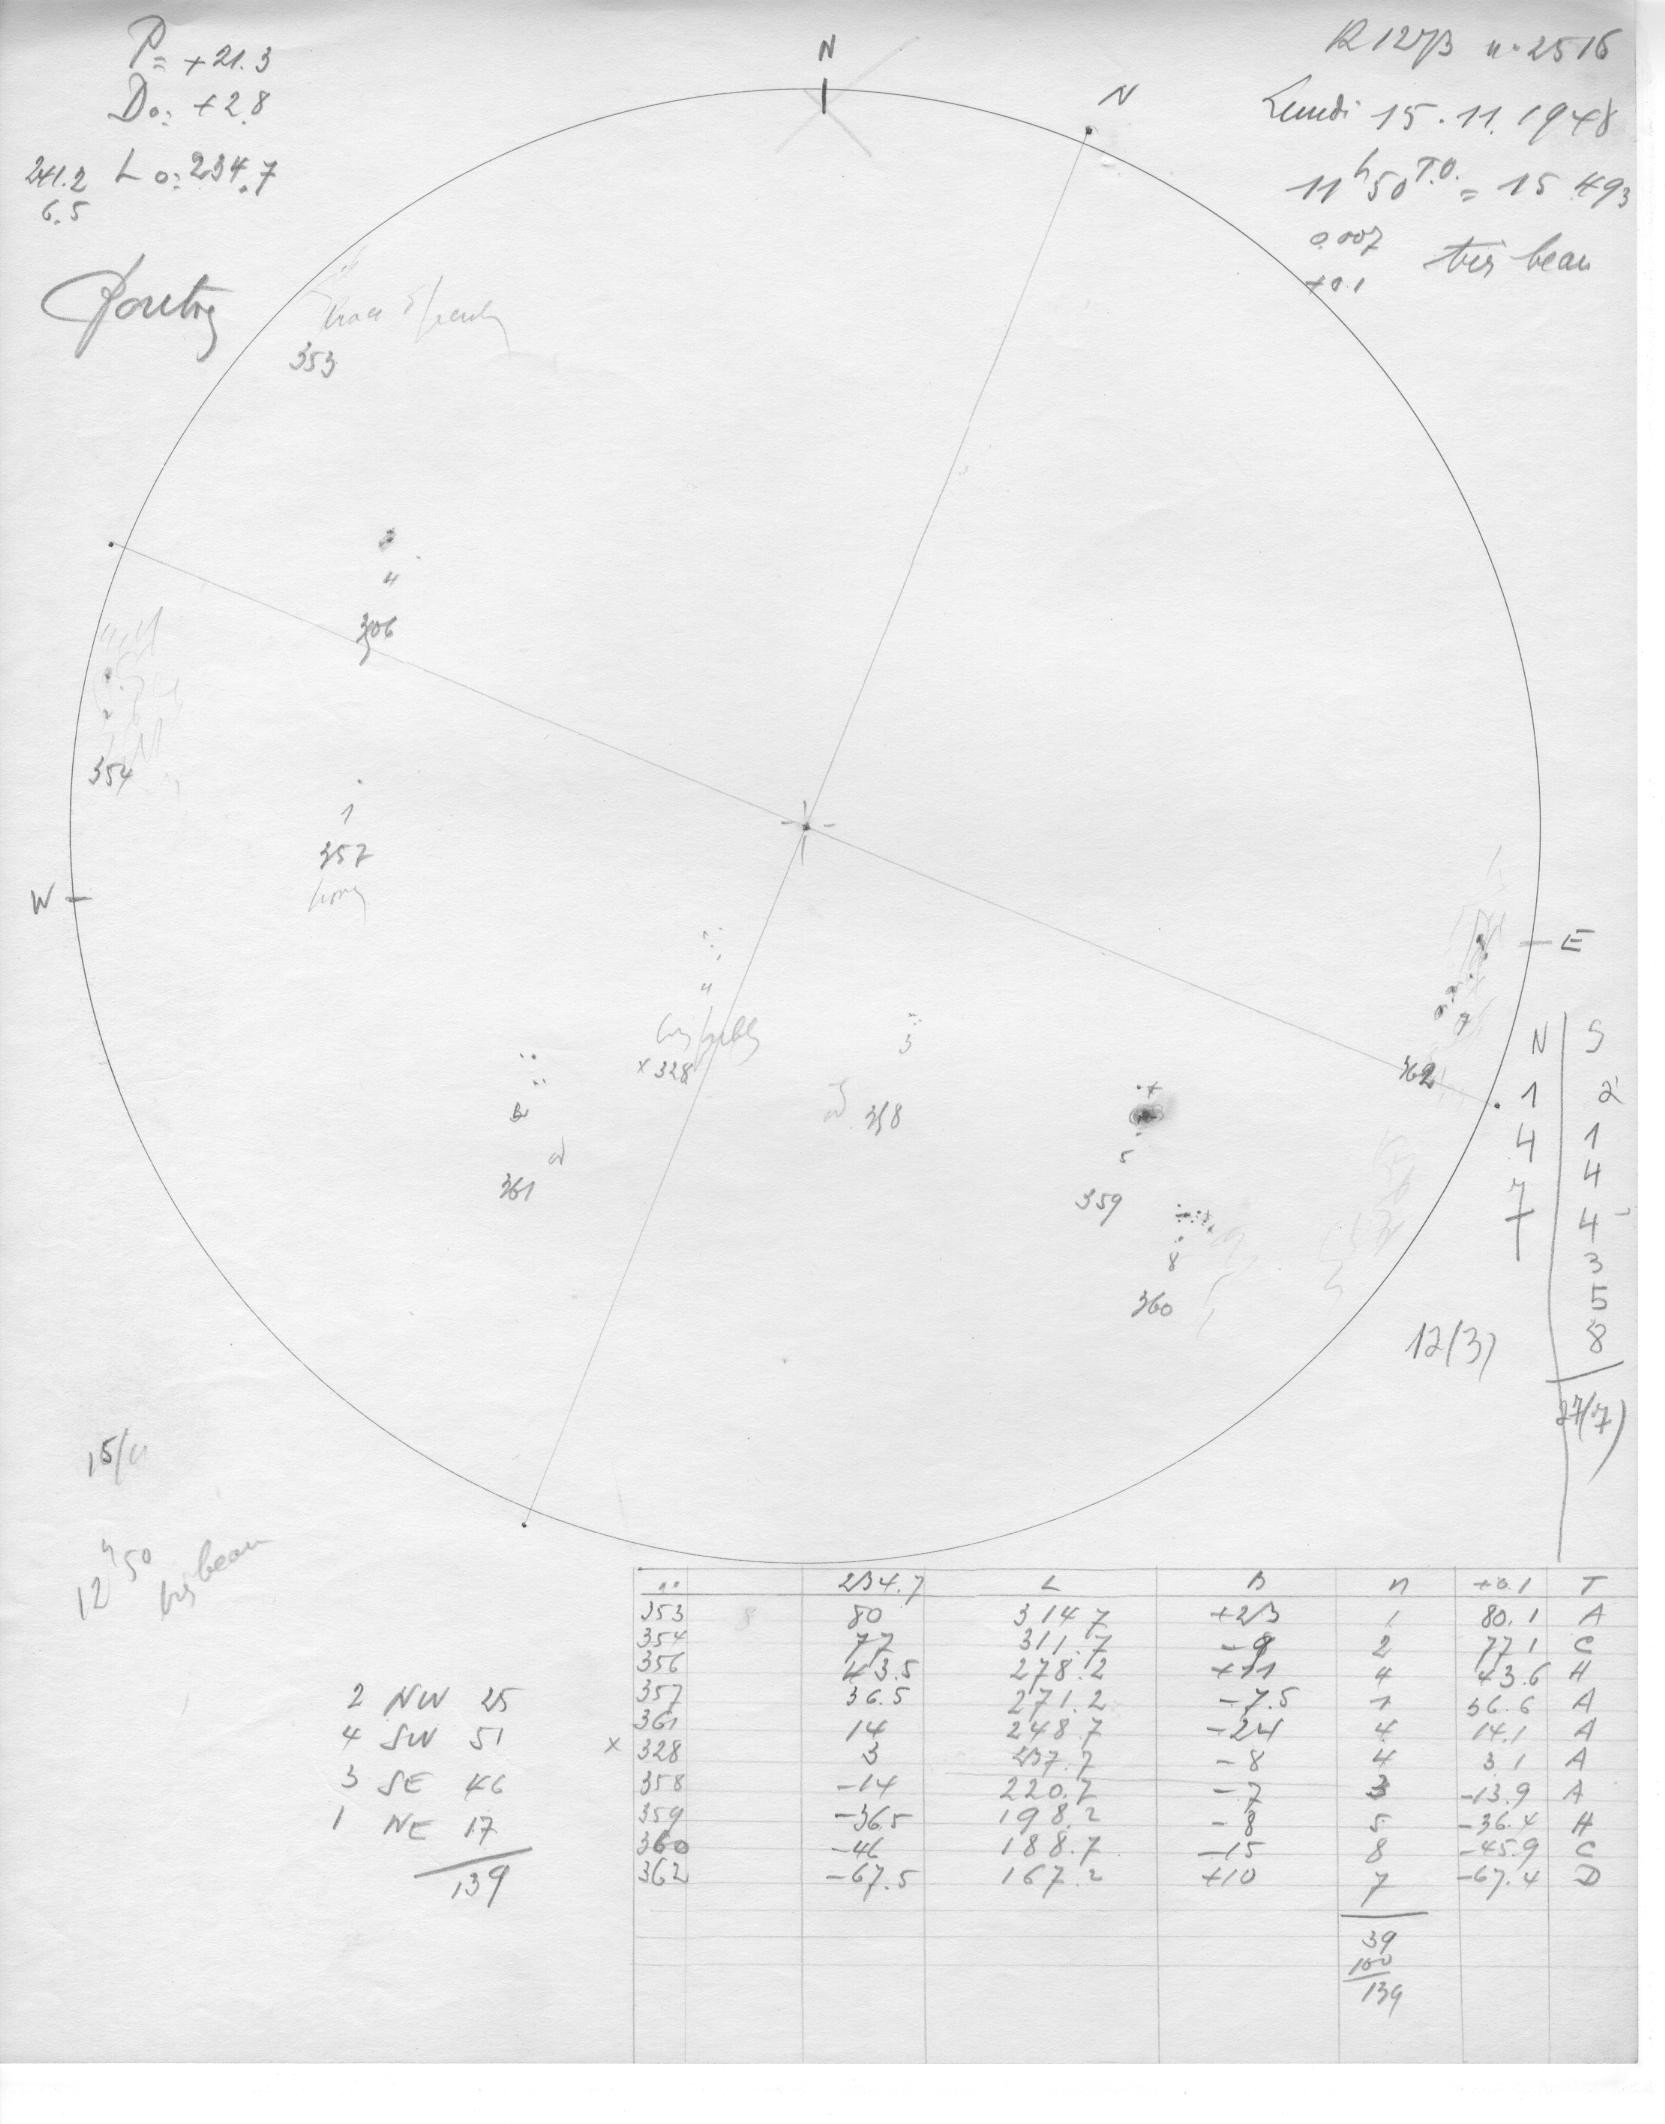 P= +21.3
Do: +2.8
241.2 Lo: 234.7
6.5
N
N
R 1273 n. 2516
Lundi 15.11.1948
11h50 T.U. = 15 493
0.007 très beau
+0.1
353
4
306
2
354
1
357
W
E
4
x 328
3
358
361
+
5
359
8
360
7
362
N S
1 2
4 1
7 4
4
3
5
8
12(3)
27(7)
15/11
12h50 très beau
2 NW 25
4 SW 51
3 SE 46
1 NE 17
139
n. 234.7 L B n +0.1 T
353 80 314.7 +23 1 80.1 A
354 77 311.7 -9 2 77.1 C
356 43.5 278.2 +11 4 43.6 H
357 36.5 271.2 -7.5 1 36.6 A
361 14 248.7 -24 4 14.1 A
x 328 3 237.7 -8 4 3.1 A
358 -14 220.7 -7 3 -13.9 A
359 -36.5 198.2 -8 5 -36.4 H
360 -46 188.7 -15 8 -45.9 C
362 -67.5 167.2 +10 7 -67.4 D
39
100
139